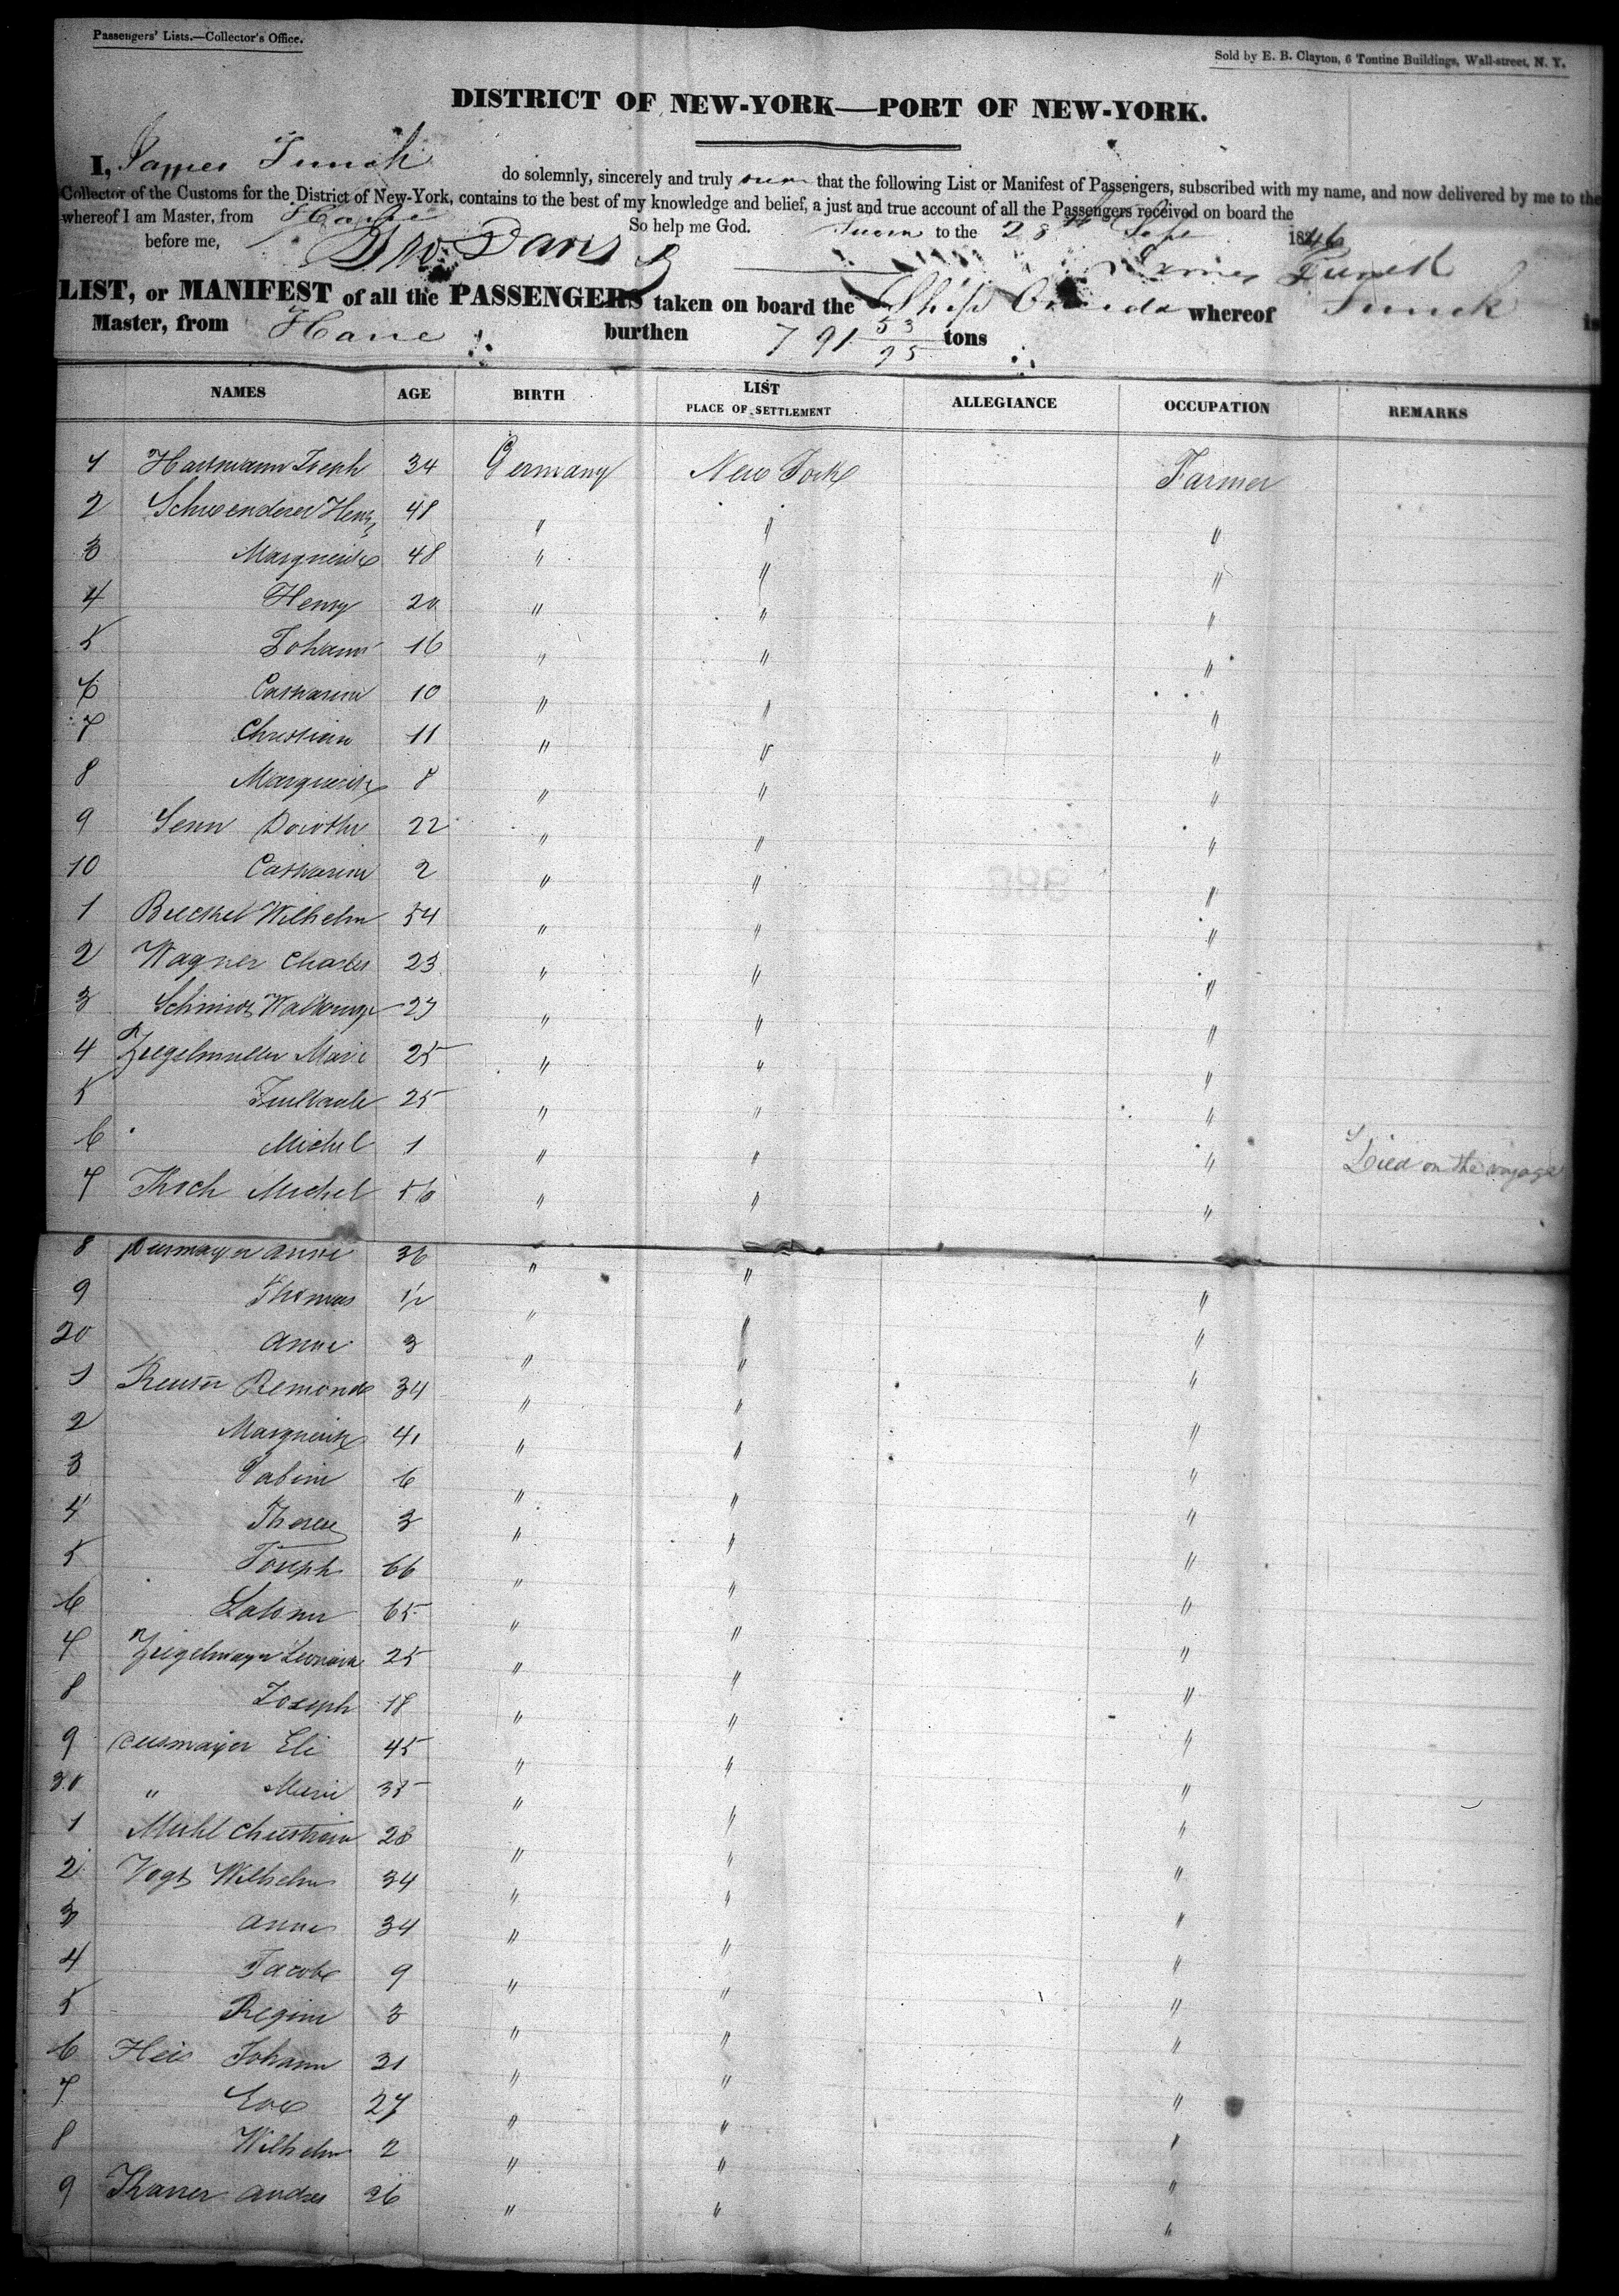 Passengers' Lists.—Collector's Office.
Sold by E. B. Clayton, 6 Tontine Buildings, Wall-street, N. Y.
DISTRICT OF NEW-YORK—PORT OF NEW-YORK.
I, James Funck do solemnly, sincerely and truly that the following List or Manifest of Passengers, subscribed with my name, and now delivered by me to the
Collector of the Customs for the District of New-York, contains to the best of my knowledge and belief, a just and true account of all the Passengers received on board the
whereof I am Master, from Havre So help me God. Sworn to the 28th Sept 1846
before me, James Funck
LIST, or MANIFEST of all the PASSENGERS taken on board the Ship Oneida whereof Funck is
Master, from Havre burthen 791 53/95 tons
NAMES AGE BIRTH LIST PLACE OF SETTLEMENT ALLEGIANCE OCCUPATION REMARKS
1 Hartmann Joseph 34 Germany New York Farmer
2 Schwenderer Henry 48 " " "
3 Marguerite 48 " " "
4 Henry 20 " " "
5 Johann 16 " " "
6 Catharine 10 " " "
7 Christian 11 " " "
8 Marguerite 8 " " "
9 Senn Dorothe 22 " " "
10 Catharine 2 " " "
1 Wilhelm 54 " " "
2 Wagner Charles 23 " " "
3 Schmidt " " "
4 Ziegelmuller Marie 25 " " "
5 25 " " "
6 Michel 1 " " " Died on the voyage
7 Koch Michel 56 " " "
8 Anne 36 " " "
9 Thomas 1/2 " " "
20 Anne 3 " " "
1 Remond 34 " " "
2 Marguerite 41 " " "
3 Sabine 6 " " "
4 Therese 3 " " "
5 Joseph 66 " " "
6 65 " " "
7 Ziegelmayer Leonard 25 " " "
8 Joseph 18 " " "
9 Eli 45 " " "
30 " Marie 35 " " "
1 Christian 28 " " "
2 Vogt Wilhelm 34 " " "
3 Anne 34 " " "
4 Jacobe 9 " " "
5 Regine 3 " " "
6 Heis Johann 31 " " "
7 Eve 27 " " "
8 Wilhelm 2 " " "
9 Andres 26 " " "